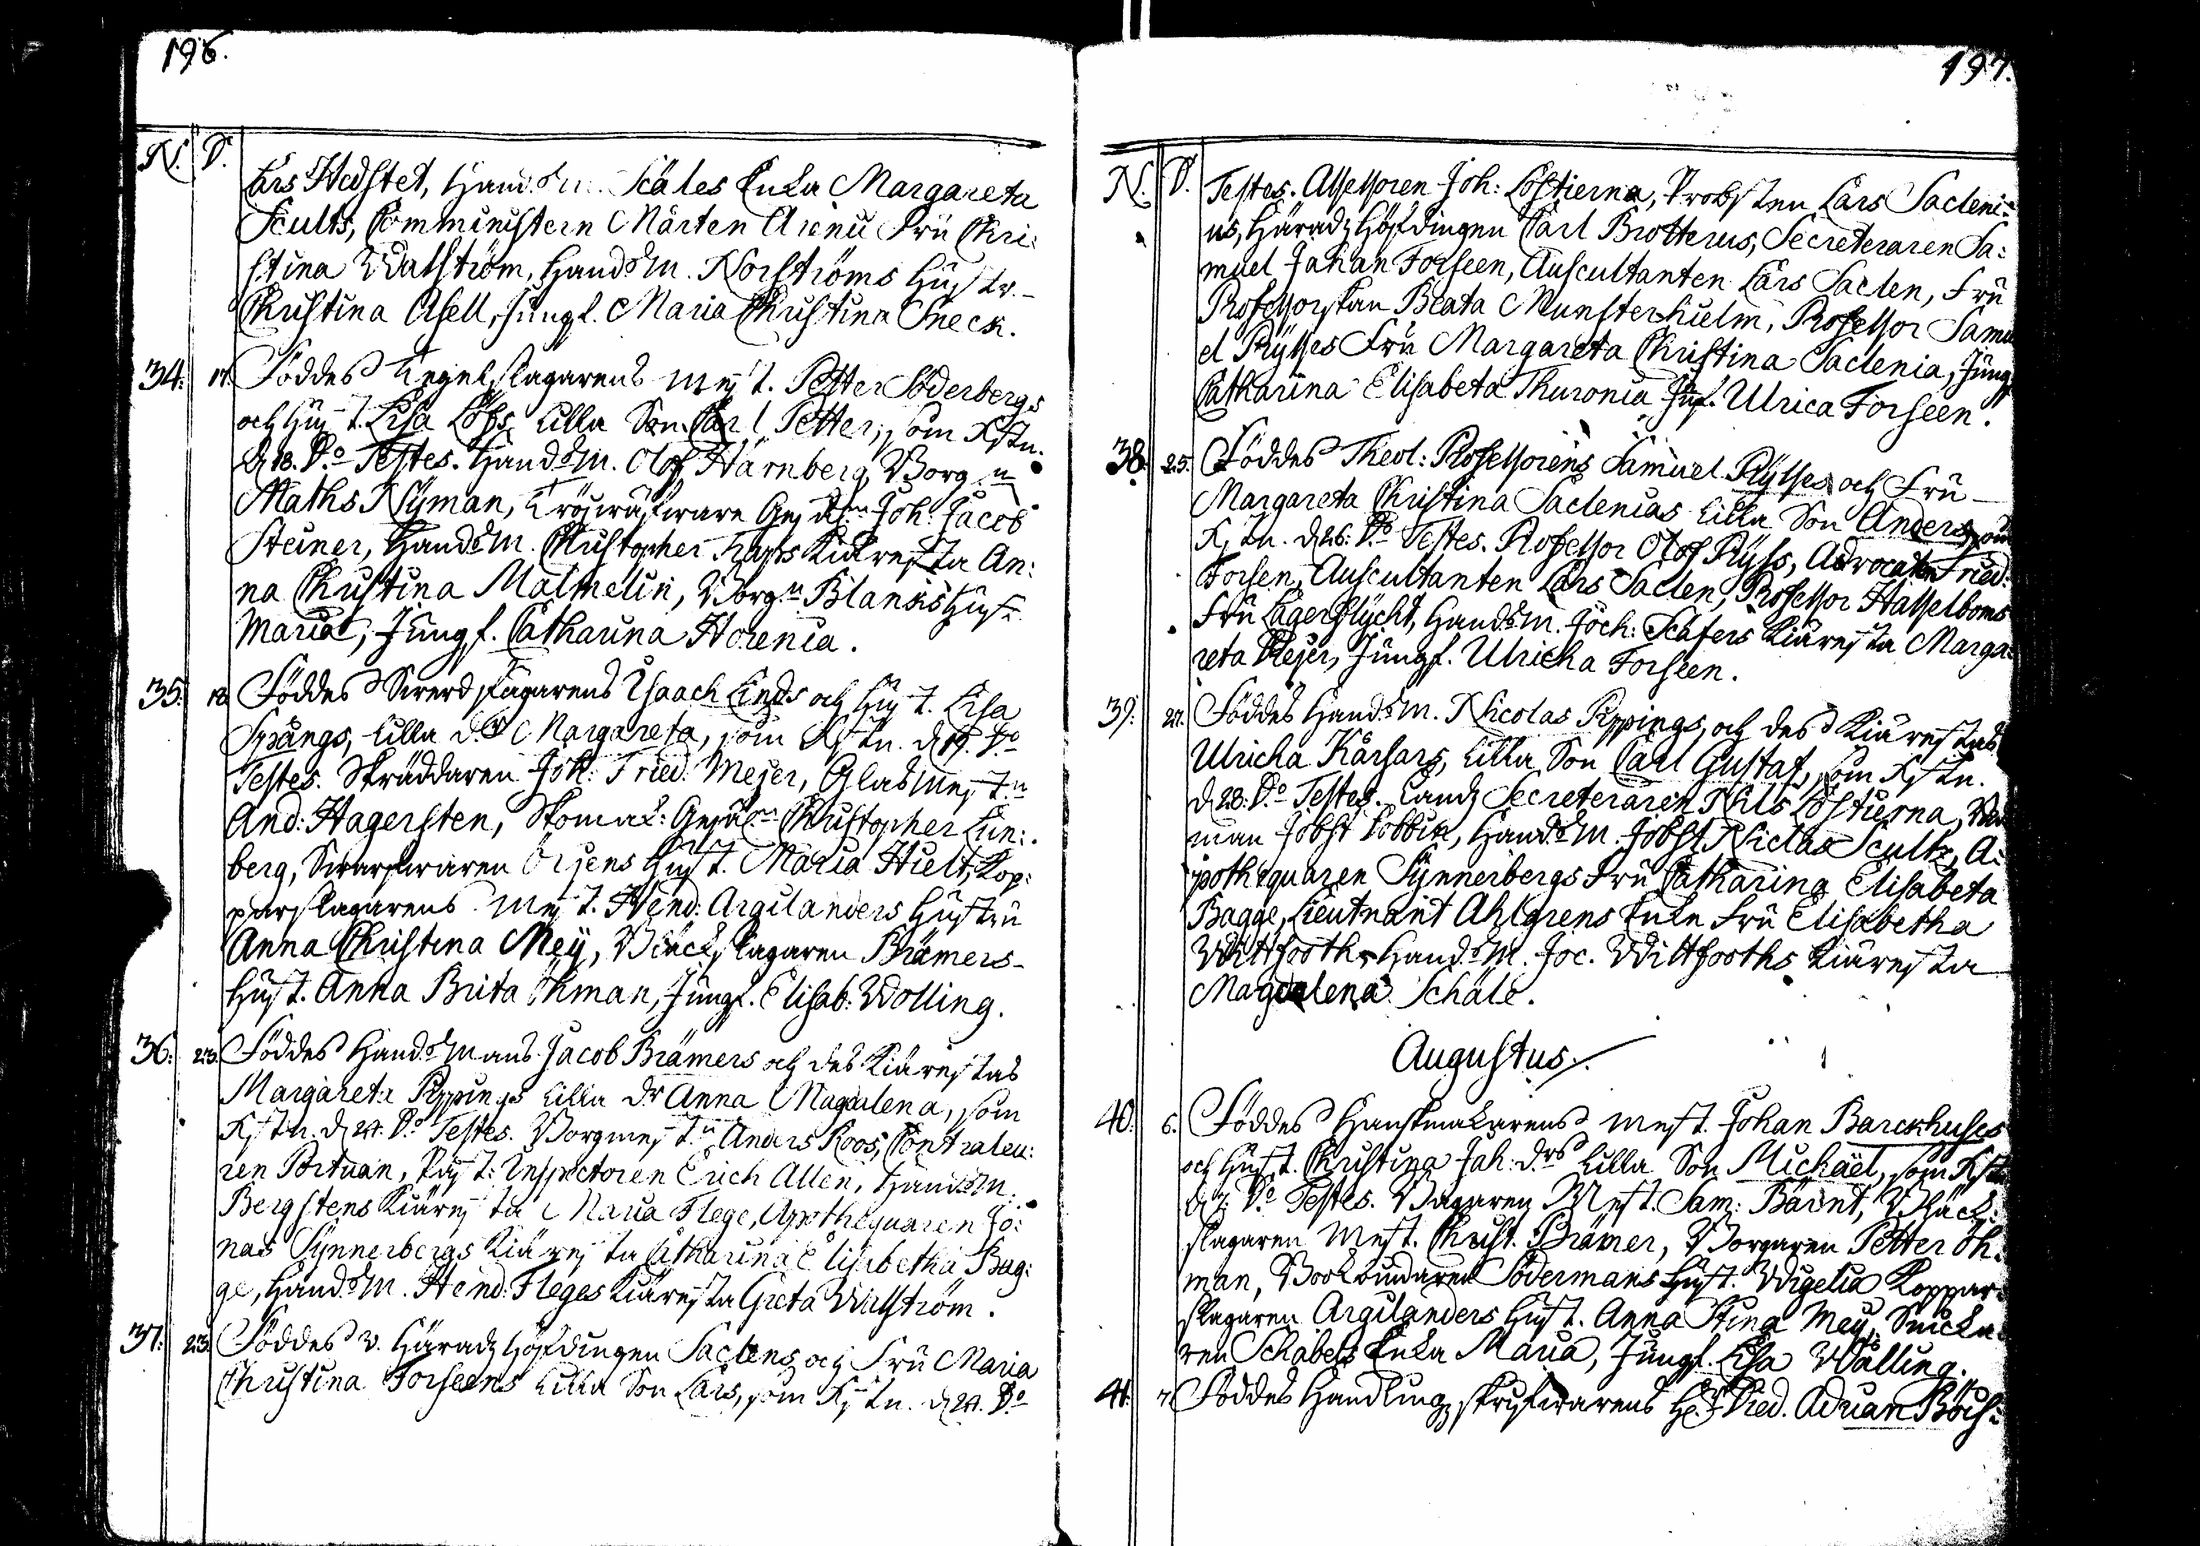 196.
N. D.
Lars Hedstet, Hand.sm. Scäles Enka Margareta
Scults, Comministern Mårten Arenii Fru Chri:
stina Walström, Handsm. Norströms Hustr.
Christina Asell, Jungf. Maria Christina Sneck.
34. 17. Föddes Tegelslagarens Mest. Petter Söderbergs
och Hust. Lisa Löfs lilla Son Carl Petter, som Xstn.
d 18. Do Testes. Handsm. Olof Härnberg, Borg.n
Maths Nyman, Joh: Jacob
Steiner, Handsm. Christopher Traps Kiäresta An:
na Christina Malmelin, Borg.n Blanks Hust.
Maria, Jungf. Catharina Horenia.
35. 18. Föddes Swerdfägarens Isaach Linds och Hust. Lisa
Spångs, lilla dr Margareta, som Xstn. d 19. Do
Testes. Skräddaren Joh: Fried: Mejer, Glasmest.n
And: Hagersten, Skomak: Gesäln Christopher Lin:
berg, Swarfwaren Hust. Maria Hielt, Kop:
parslagarens Mest. Hend: Argilanders Hustru
Anna Christina Mey, Bläckslagaren Brämers
Hust. Anna Brita Öhman, Jungf. Elisab: Wolling.
36. 23. Föddes Handsmans Jacob Brämers och des Kiärestas
Margareta Pippings lilla dr Anna Magdalena, som
Xstn. d 24. Do Testes. Borgmest.n Anders Roos, Contraleu:
ren Portuan, Post: Inspectoren Erich Allen, Handsm.
Bergstens Kiäresta Maria Flege, Apothequaren Jo:
nas Synnerbergs Kiäresta Catharina Elisabetha Bag:
ge, Handsm. Hend: Fleges Kiäresta Greta Walström.
37. 23. Föddes v. Häradz Höfdingen Saclens och Fru Maria
Christina Forseens lilla Son Lars, som Xstn. d 24. Do
197.
N. D.
Testes. Assessoren Joh: Löstierna, Probsten Lars Sacleni:
us, Häradz Höfdingen Carl Brotterus, Secreteraren Sa:
muel Johan Forseen, Auscultanten Lars Saclen, Fru
Professorskan Beata Munsterhielm, Professor Samu
el Prysses Fru Margareta Christina Saclenia, Jungf
Catharina Elisabeta Thuronia Juf. Ulrica Forseen.
38. 25. Föddes Theol: Professorens Samuel Pryssés och Fru
Margareta Christina Saclenias lilla Son Anders, som
Xstn. d 26. Do Testes. Professor Olof Pryss, Advocaten Fried:
Forsen, Auscultanten Lars Saclen, Professor Hasselboms
Fru Lagerflycht, Handsm. Joch: Scäfers Kiäresta Marga:
reta Plejer, Jungf. Ulricha Forseen.
39. 27. Föddes Handsm. Nicolas Pippings och des Kiärestas
Ulricha Kårsars, lilla Son Carl Gustaf, som Xstn.
d 28. Do Testes. Landz Secreteraren Nils Löstierna,
man Jobst Dobbin, Handsm. Jobst Niclas Scultz, A:
pothequaren Synnerbergs Fru Catharina Elisabeta
Bagge, Lieutnant Ahlgrens Enka Fru Elisabetha
Wittfooth, Handsm. Joc. Wittfooths Kiäresta
Magdalena Schäle.
Augustus.
40. 6. Föddes Hanskmakarens Mest. Johan Barckhuses
och Hust. Christina Joh: drs lilla Son Michäel, som Xstn
d 7. Do Testes. Bagaren Mest. Sam: Bärnt, Bläck:
slagaren Mest. Christ. Brämer, Borgaren Petter Öh:
man, Bookbindaren Södermans Hust. Wigelia Koppar:
slagaren Argilanders Hust. Anna Stina Mey, Snicka:
ren Schabels Enka Maria, Jungf. Lisa Wålling.
41. 7. Föddes Handlingzskrifwarens Hr Died. Adrian Böis: